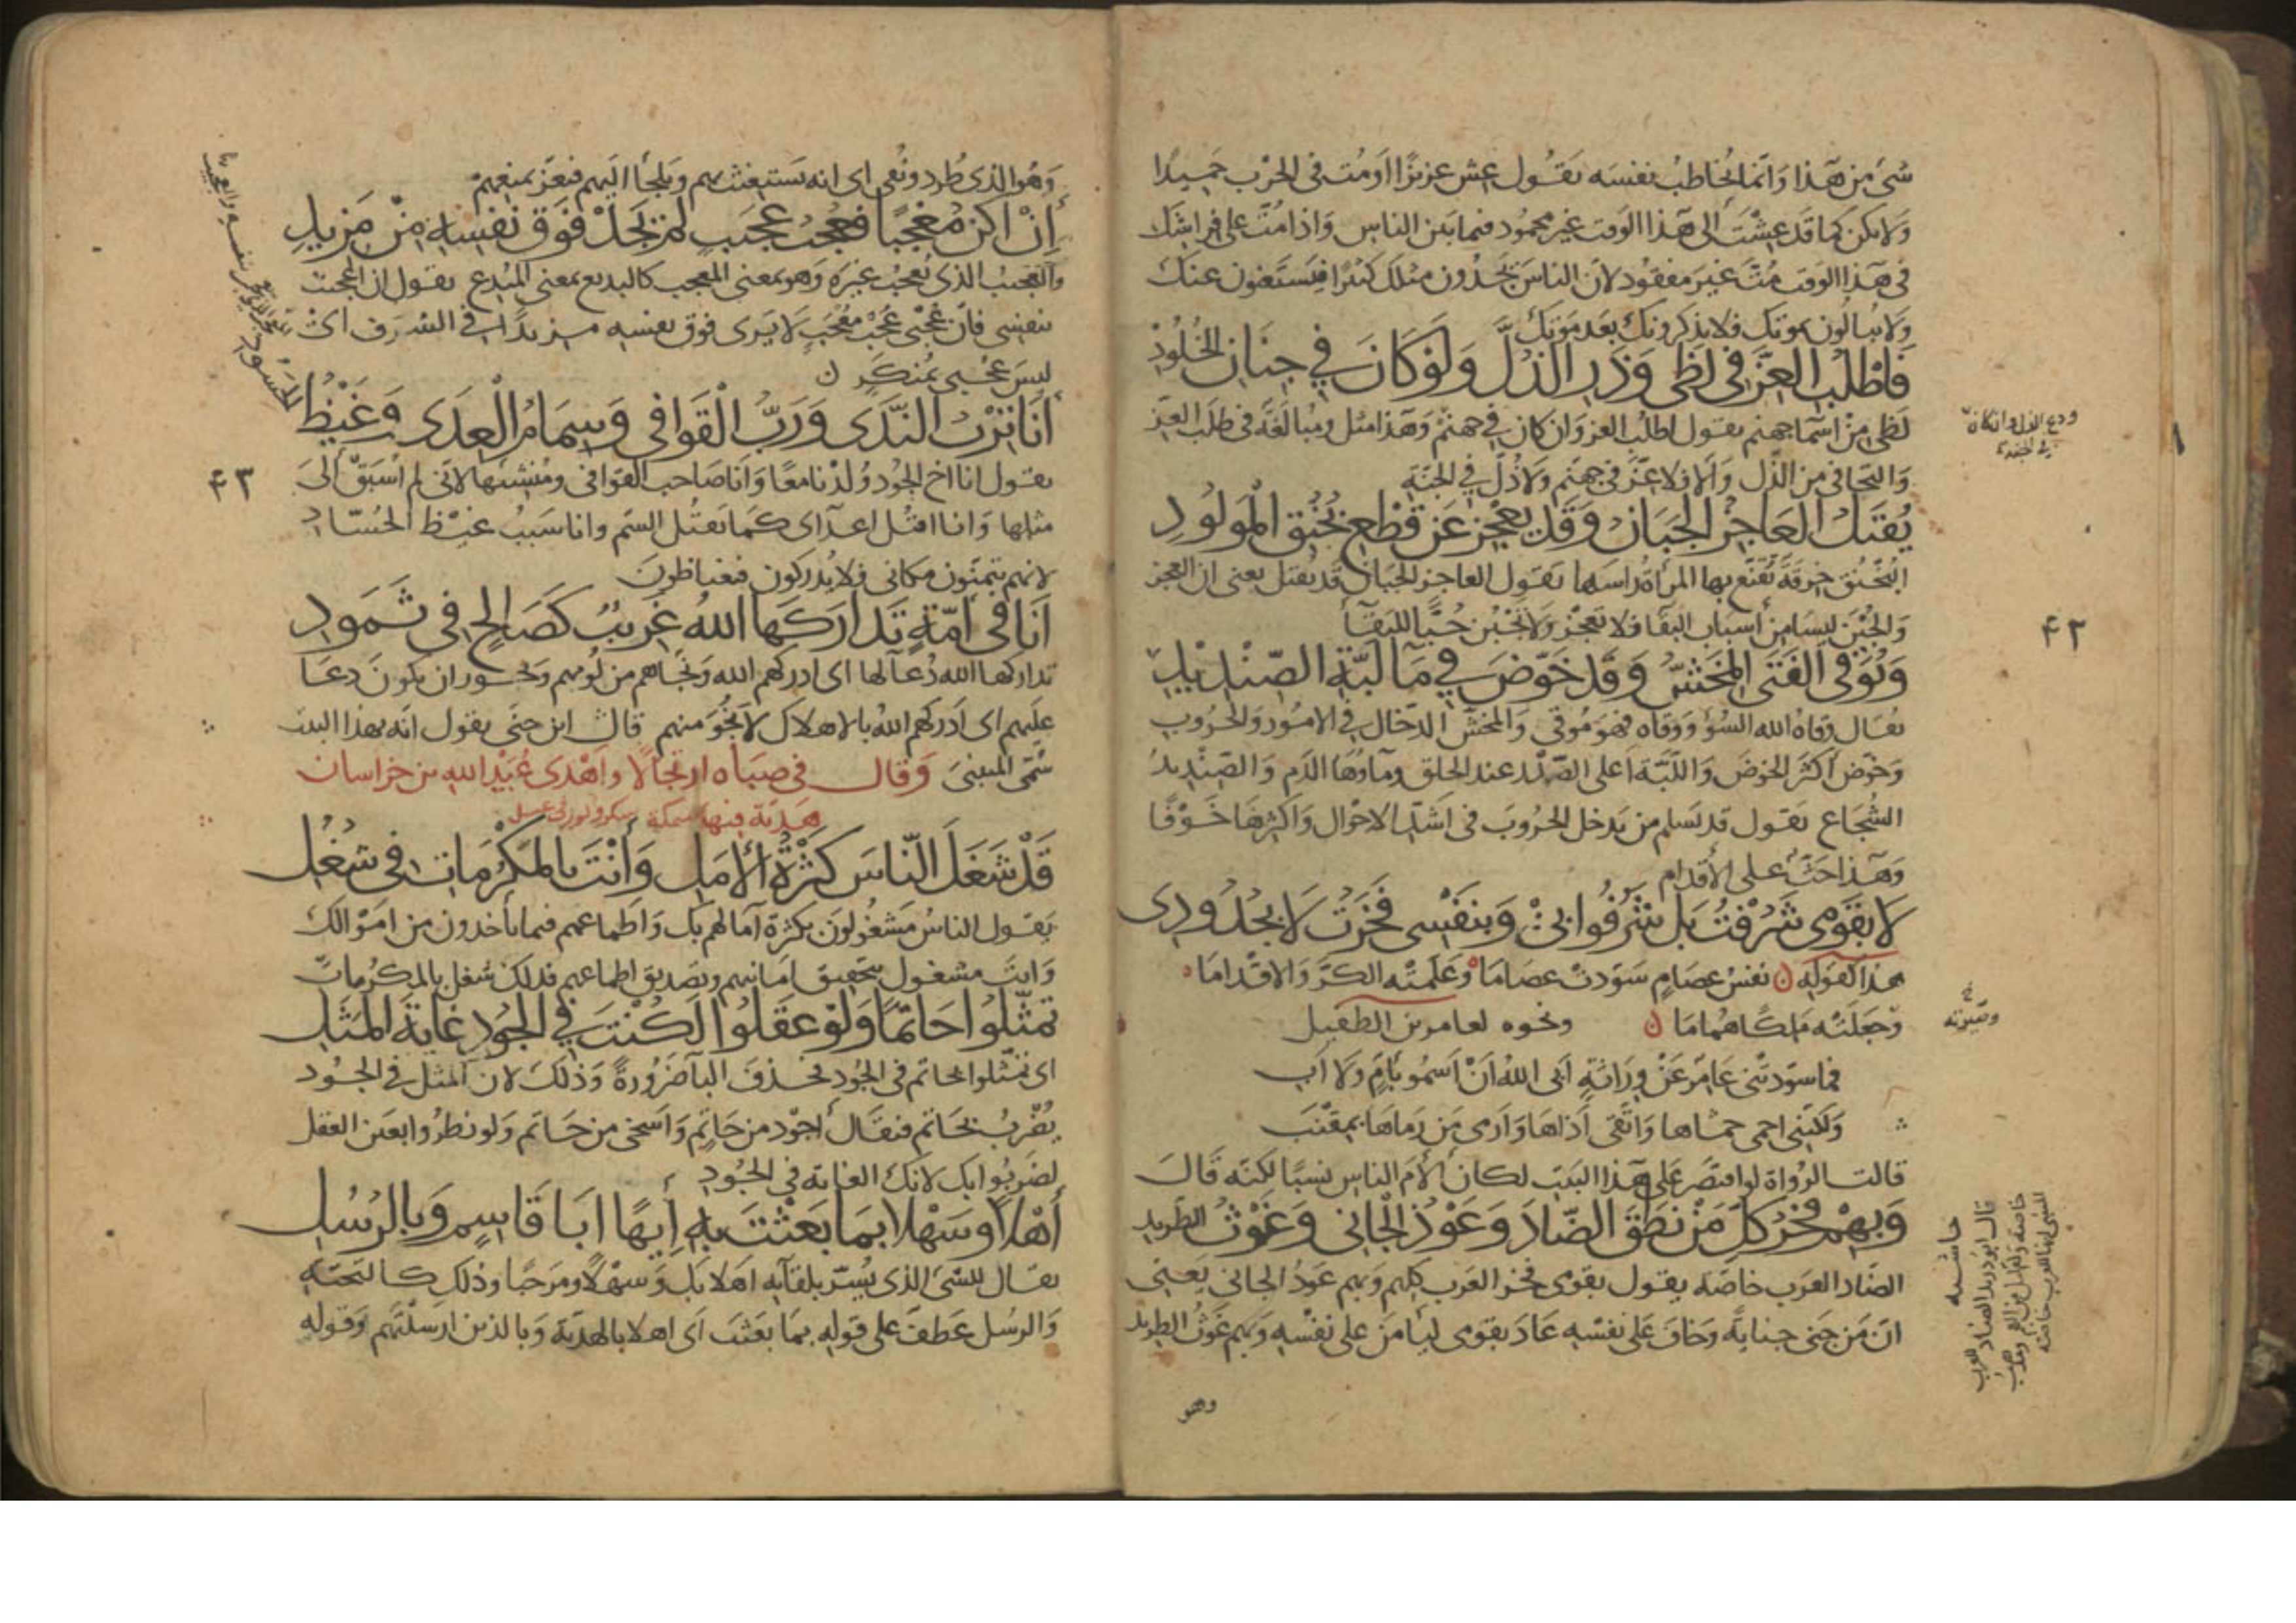 شىء من هذا وانما يخاطب نفسه يقول عش عزيزا او مت فى الحرب حميدا
ولا تكن كما قد عشت الى هذا الوقت غير محمود فيما بين الناس واذا مت على فراشك
فى هذا الوقت مت غير مفقود لان الناس يجدون مثلك كثيرا فيستغنون عنك
ولا يبالون بموتك فلا يذكرونك بعد موتك
فاطلب العز فى لظى وذر الذل ولو كان في جنان الخلود
لظى من اسما جهنم يقول اطلب العز وان كان في جهنم وهذا مثل ومبالغة فى طلب العز
والتجافى من الذل والا فلا عز فى جهنم ولا ذل في الجنة
يقتل العاجز الجبان وقد يعجز عن قطع بخنق المولود
البخنق خرقة تقنع بها المراة راسها يقول العاجز الجبان قد يقتل يعنى ان العجز
والجبن ليسا من أسباب البقا فلا تعجز ولا تجبن حبا للبقآ
ويوقى الفتى المخش وقد خوض في مآ لبة الصنديد
يقال وقاه الله السؤ ووقاه فهو موقى والمخش الدخال في الامور والحروب
وخوض أكثر الخوض واللبة اعلى الصدر عند الحلق ومآوها الدم والصنديد
الشجاع يقول قد يسلم من يدخل الحروب فى اشد الاحوال واكثرها خوفا
وهذا حث على الأقدام
لا بقومى شرفت بل شرفوا بى وبنفسى فخرت لا بجدودى
هذا كقوله نفس عصام سودت عصاما وعلمته الكر والاقداما
وجعلته ملكا هماما ونحوه لعامر بن الطفيل
فما سودتنى عامر عن وراثة ابى الله ان اسمو بام ولا اب
ولكننى احمى حماها واتقى اذاها وارمى من رماها بمقنب
قالت الرواة لو اقتصر على هذا البيت لكان ألأم الناس نسبا لكنه قال
وبهم فخر كل من نطق الضاد وعوذ الجانى وغوث الطريد
الضاد العرب خاصة يقول بقومى فخر العرب كلهم وبهم عوذ الجانى يعنى
ان من جنى جناية وخاف على نفسه عاذ بقومى ليأمن على نفسه وبهم غوث الطريد
وهو
ودع الذل وان كان
في الجنة
٤٢
وصيرته
حاشية
وهو الذى طرد ونفى اى انه يستغيث بهم ويلجأ اليهم فتعز بمنعهم
إن اكن معجبا فعجب عجيب لم تجد فوق نفسه من مزيد
والعجيب الذى يعجب غيره وهو بمعنى المعجب كالبديع بمعنى المبدع يقول ان اعجبت
بنفسى فان عجبى عجب معجب لا يرى فوق نفسه مزيدا فى الشرف اى
ليس عجبى بمنكر
أنا ترب الندى ورب القوافى وسمام العدى وغيظ
الحسود
يقول انا اخ الجود ولدنا معا وانا صاحب القوافى ومنشئها لانى لم اسبق الى
مثلها وانا اقتل اعدآى كما يقتل السم وانا سبب غيظ الحساد
لانهم يتمنون مكانى فلا يدركون فيغتاظون
انا فى امة تداركها الله غريب كصالح فى ثمود
تداركها الله دعآ لها اى ادركهم الله ونجاهم من لومهم ويجوز ان يكون دعا
عليهم اى ادركهم الله بالاهلاك لانجو منهم قال ابن جنى يقول انه بهذا البيت
سمى المتنبى وقال فى صباه ارتجالا واهدى عبيد الله من خراسان
هدية فيها سمكة
قد شغل الناس كثرة الأمل وأنت بالمكرمات فى شغل
يقول الناس مشغولون بكثرة آمالهم بك واطماعهم فيما يأخذون من اموالك
وانت مشغول بتحقيق امانيهم وتصديق اطماعهم فذلك شغل بالمكرمات
تمثلوا حاتما ولو عقلوا لكنت في الجود غاية المثل
اى تمثلوا بحاتم فى الجود فحذف البآ ضرورة وذلك لان المثل في الجود
يضرب بحاتم فيقال أجود من حاتم واسخى من حاتم ولو نظروا بعين العقل
لضربوا بك لانك الغاية فى الجود
أهلا وسهلا بما بعثت به إيها ابا قاسم وبالرسل
يقال للشىء الذى يسر بلقآيه اهلا بك وسهلا ومرحبا وذلك كالتحية
والرسل عطف على قوله بما بعثت اى اهلا بالهدية وبالذين ارسلتهم وقوله
٤٣